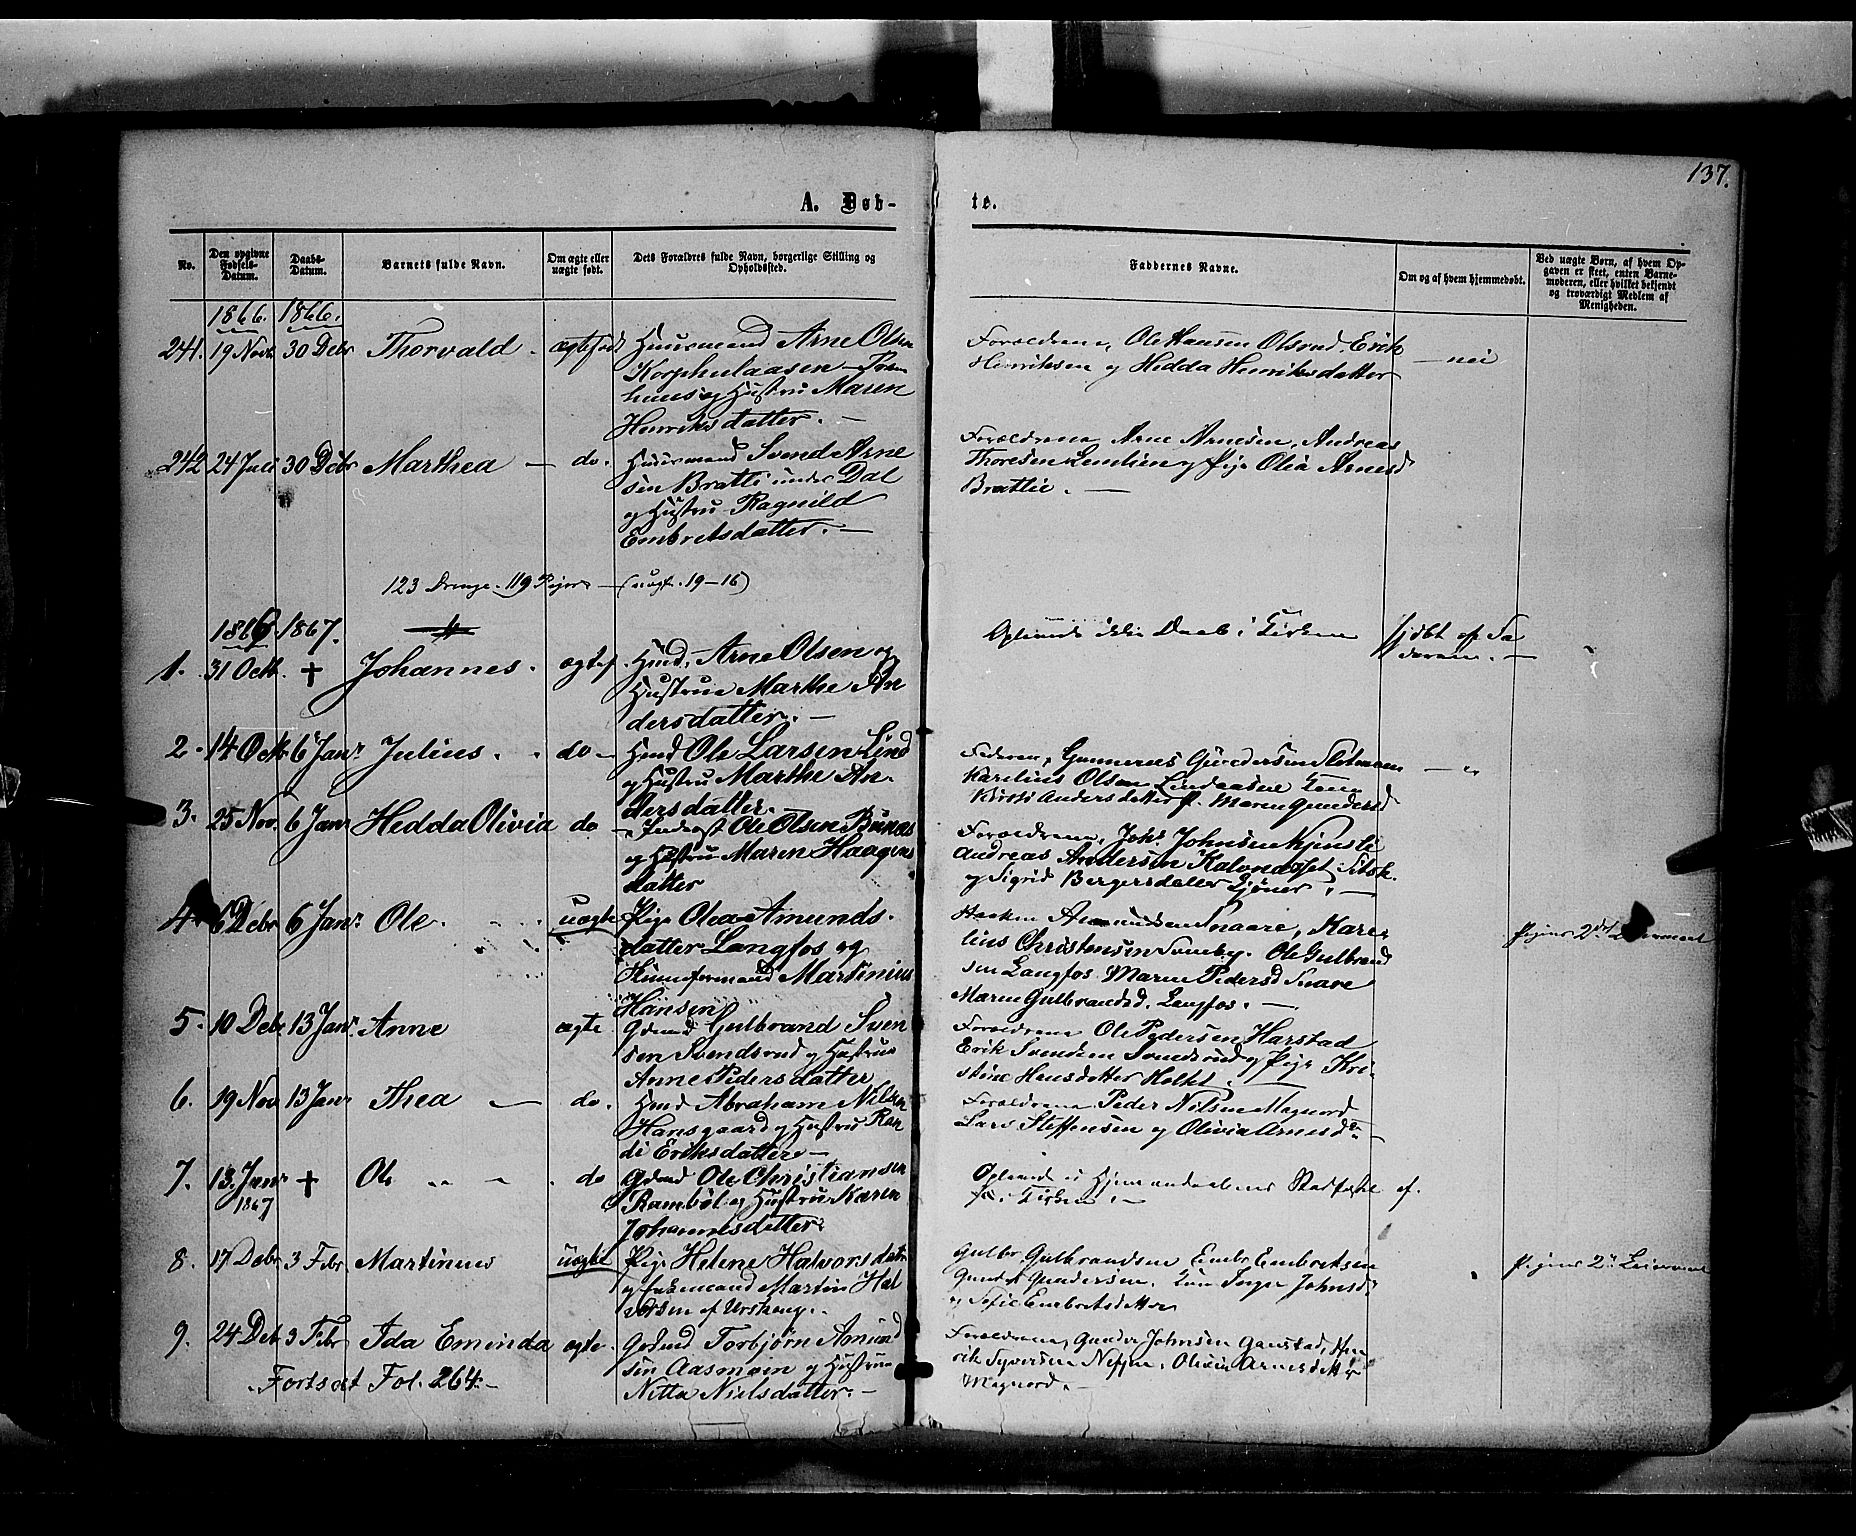 137.
A. Døb-
te.
No.
Den opgivne Fødsels-Datum.
Daabs-Datum.
Barnets fulde Navn.
Om ægte eller uægte født.
Dets Forældres fulde Navn, borgerlige Stilling og Opholdssted.
Faddernes Navne.
Om og af hvem hjemmedøbt.
Ved uægte Børn, af hvem Opgaven er skeet, enten Barnemoderen, eller hvilket bekjendt og troværdigt Medlem af Menigheden.
1866. 1866.
241. 19 Novb. 30 Debr Thorvald ægtefød
Huusmand Arne Olsen
Korphulaasen
huus og Hustru Maren
Henriksdatter.
Forældrene, Ole Hansen Olsrud, Erik
Henriksen og Hedda Henriksdatter
nei
242 24 Juli 30 Debr Marthea do.
Huusmand Svend Arne
sen Bratli under Dal
og Hustru Ragnild
Embretsdatter.
Forældrene, Arne Arnesen, Andreas
Thoresen Lemlien og Pige Olea Arnesd
Brattlie.
123 Drenge. 119 Piger (uægt. 19-16)
1866 1867.
1. 31 Octb. + Johannes. ægtef.
Hmd. Arne Olsen og
Hustrue Marthe An
dersdatter.
ikke Daab i Kirken
2 14 Octb. 6 Janr Julius do
Hmd Ole Larsen Lind
og Hustru Marthe An
dersdatter.
Faderen, Gunnerus Gundersen
Karelius Olsen Lindaasen
Andersdatter Maren Gundersd
3. 25 Nov. 6 Janr Hedda Olivia do
Inderst Ole Olsen Bunæs
og Hustru Maren Haagens
datter
Forældrene, Johs. Johnsen
Andreas Andersen
og Sigrid Bergersdatter
4 6 Debr 6 Janr Ole uægte
Pige Olea Amunds
datter Langfos og
Martinius
Hansen
Haaken Amundsen Snaare, Kare
lius Christensen Ole Gulbrand
sen Langfos. Maren Pedersd Snare
Maren Gulbrandsd. Langfos.
Pigens 2det Leiermaal
5. 10 Debr 13 Janr Anne ægte
Gdmd Gulbrand Sven
sen Svendsrud og Hustrue
Anne Pedersdatter
Forældrene Ole Pedersen Harstad
Erik Svendsen Svendsrud og Pige Kri
stine Hansdatter Holtet.
6. 19 Nov 13 Janr Thea do.
Hmd Abraham Nilsen
Hansgaard og Hustru Ran
di Eriksdatter
Forældrene Peder Nilsen Magnord
Lars Steffensen og Olivia Arnesd.
7. 13. Janr 1867 + Ole do
Gdmd Ole Christiansen
Rambøl og Hustru Karen
Johannesdatter
Hjemmedaabens Stadfæst. af.
Kirken.
8. 17 Debr 3 Febr Martinus uægte
Pige Helene Halvorsdatr
og Martin Hal
vorsen af Urskoug.
Gulbr Gulbrandsen Embr Embretsen
Gundersen. Inger Johnsd.
og Sofie Embretsdatter
Pigens 2d Leiermaal
9. 24 Deb. 3 Febr Ida Eminda ægte.
Gdmd Torbjørn Amund
sen Aasmoin og Hustrue
Netta Nielsdatter.
Forældrene, Gunder Johnsen Hen
rik Syversen Olivia Arnesdatter
Magnord.
Fortsat Fol. 264.